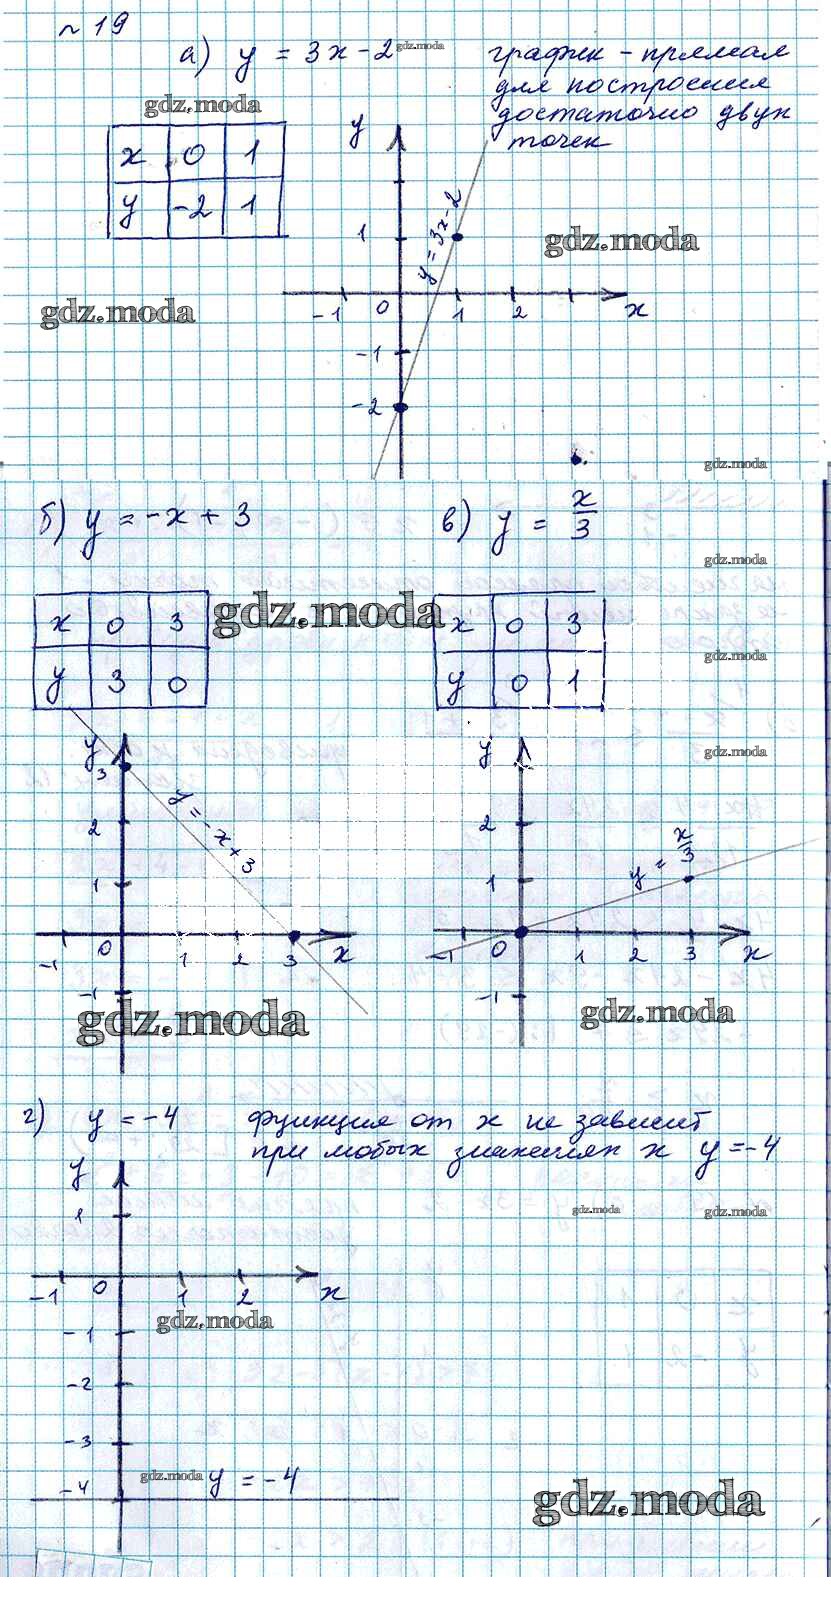 № 19
а) y = 3x - 2 график - прямая
gdz.moda
для построения
gdz.moda
достаточно двух
точек
x 0 1
y -2 1
y
y = 3x - 2
1
gdz.moda
-1 0 1 2 x
gdz.moda
-1
-2
gdz.moda
б) y = -x + 3 в) y = x/3
gdz.moda
x 0 3
y 3 0
gdz.moda
x 0 3
y 0 1
gdz.moda
y
3
y = -x + 3
2
1
-1 0 1 2 3 x
-1
gdz.moda
y
gdz.moda
2
y = x/3
1
-1 0 1 2 3 x
-1
gdz.moda
г) y = -4 функция от x не зависит
при любых значениях x y = -4
y
gdz.moda
gdz.moda
1
-1 0 1 2 x
gdz.moda
-1
-2
-3
gdz.moda y = -4
-4
gdz.moda